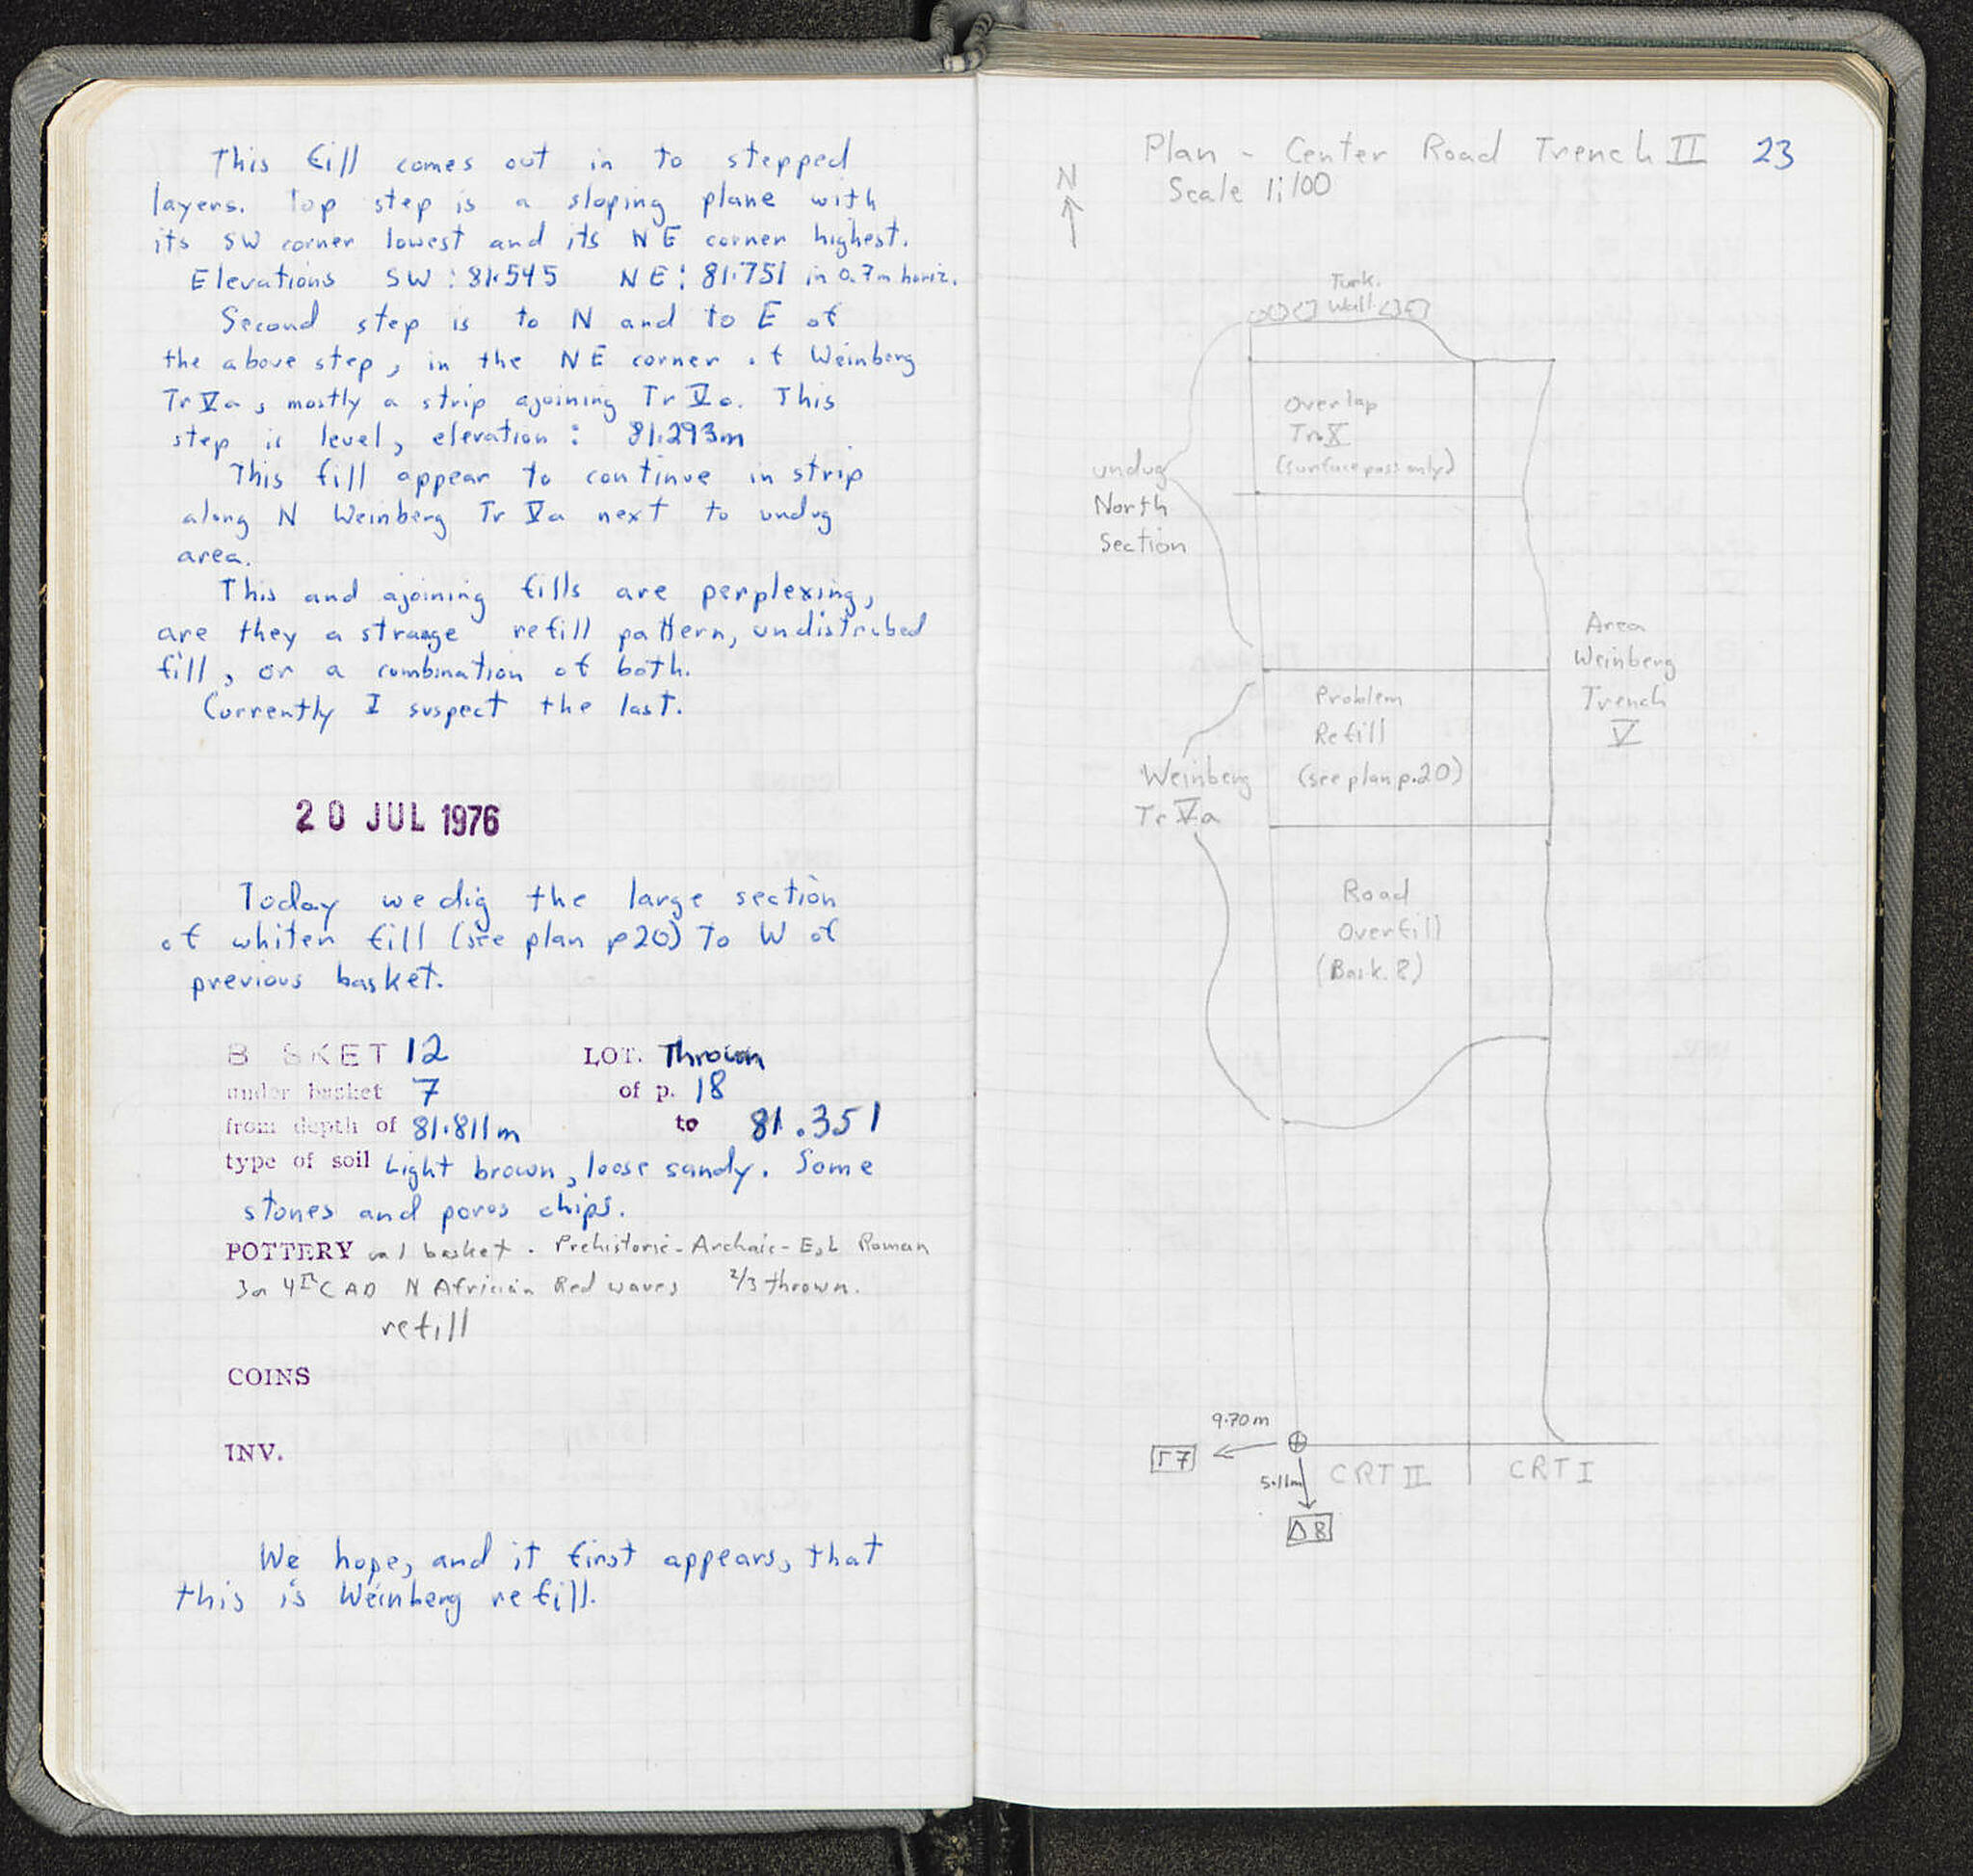 This fill comes out in to stepped
layers. Top step is a sloping plane with
its SW corner lowest and its NE corner highest.
Elevations SW : 81.545 NE : 81.751 in 0.7m horiz.
Second step is to N and to E of
the above step, in the NE corner of Weinberg
Tr Va, mostly a strip ajoining Tr Vo. This
step is level, elevation : 81.293m
This fill appear to continue in strip
along N Weinberg Tr Va next to undug
area.
This and ajoining fills are perplexing,
are they a strange refill pattern, undistrubed
fill, or a combination of both.
Currently I suspect the last.
20 JUL 1976
Today we dig the large section
of whiten fill (see plan p20) to W of
previous basket.
B SKET 12 LOT. Thrown
under basket 7 of p. 18
from depth of 81.811m to 81.351
type of soil Light brown, loose sandy. Some
stones and poros chips.
POTTERY 1 basket. Prehistoric - Archaic - E, L Roman
3 or 4th C AD N African Red wares 2/3 thrown.
refill
COINS
INV.
We hope, and it first appears, that
this is Weinberg refill.
Plan - Center Road Trench II 23
Scale 1:100
N
Turk.
Wall
Overlap
Tr. X
(surface pass only)
undug
North
Section
Area
Weinberg
Trench
V
Problem
Refill
(see plan p.20)
Weinberg
Tr Va
Road
Overfill
(Bask. 8)
9.70m
Γ7
5.11m
CRT II
CRT I
Δ8